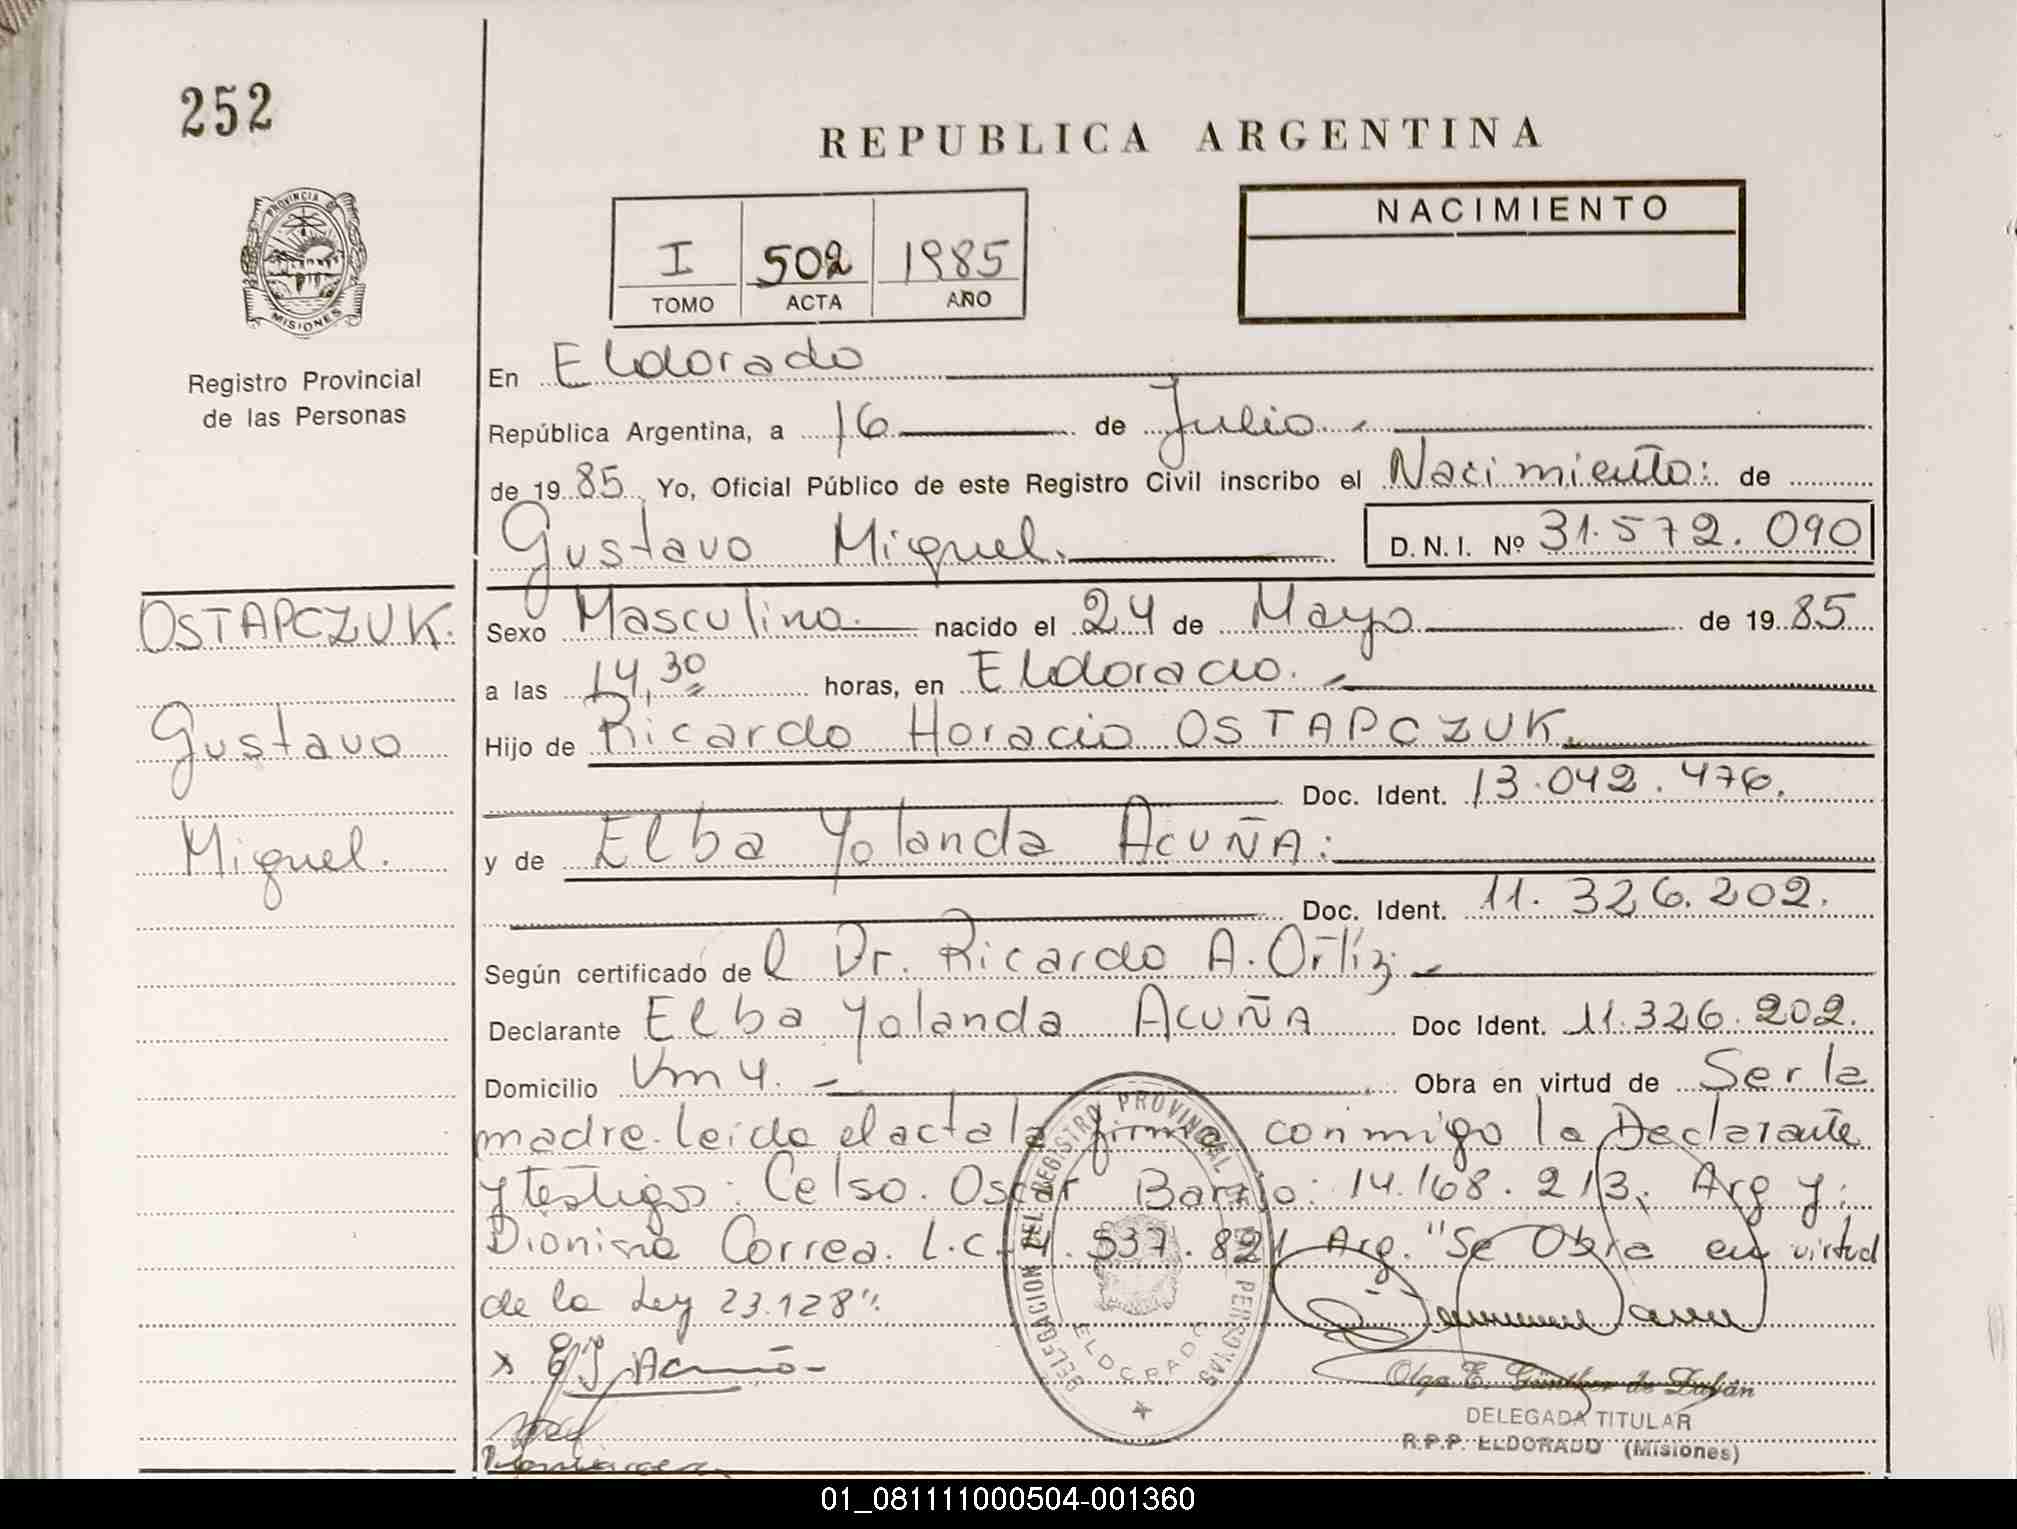 252
REPUBLICA ARGENTINA
PROVINCIA DE
MISIONES
I 502 1985
TOMO ACTA AÑO
NACIMIENTO
Registro Provincial
de las Personas
En Eldorado
República Argentina, a 16 de Julio.
de 1985 Yo, Oficial Público de este Registro Civil inscribo el Nacimiento: de
Gustavo Miguel. D.N.I. Nº 31.572.090
OSTAPCZUK.
Gustavo
Miguel.
Sexo Masculino. nacido el 24 de Mayo de 1985
a las 14,30 horas, en Eldorado.
Hijo de Ricardo Horacio OSTAPCZUK.
Doc. Ident. 13.042.476.
y de Elba Yolanda ACUÑA:
Doc. Ident. 11.326.202.
Según certificado del Dr. Ricardo A. Ortíz.
Declarante Elba Yolanda ACUÑA Doc Ident. 11.326.202.
Domicilio Km 4. Obra en virtud de Ser la
madre. leida el acta la firma conmigo la Declarante
y testigos: Celso. Oscar Barrjo: 14.168.213. Arg y:
Dionisia Correa. L.C. 4.537.821 Arg. "Se Obra en virtud
de la Ley 23.128".
x E Y Acuña
DELEGACION DEL REGISTRO PROVINCIAL DE PERSONAS
ELDORADO
Olga E. Günther de Dubán
DELEGADA TITULAR
R.P.P. ELDORADO (Misiones)
01_081111000504-001360